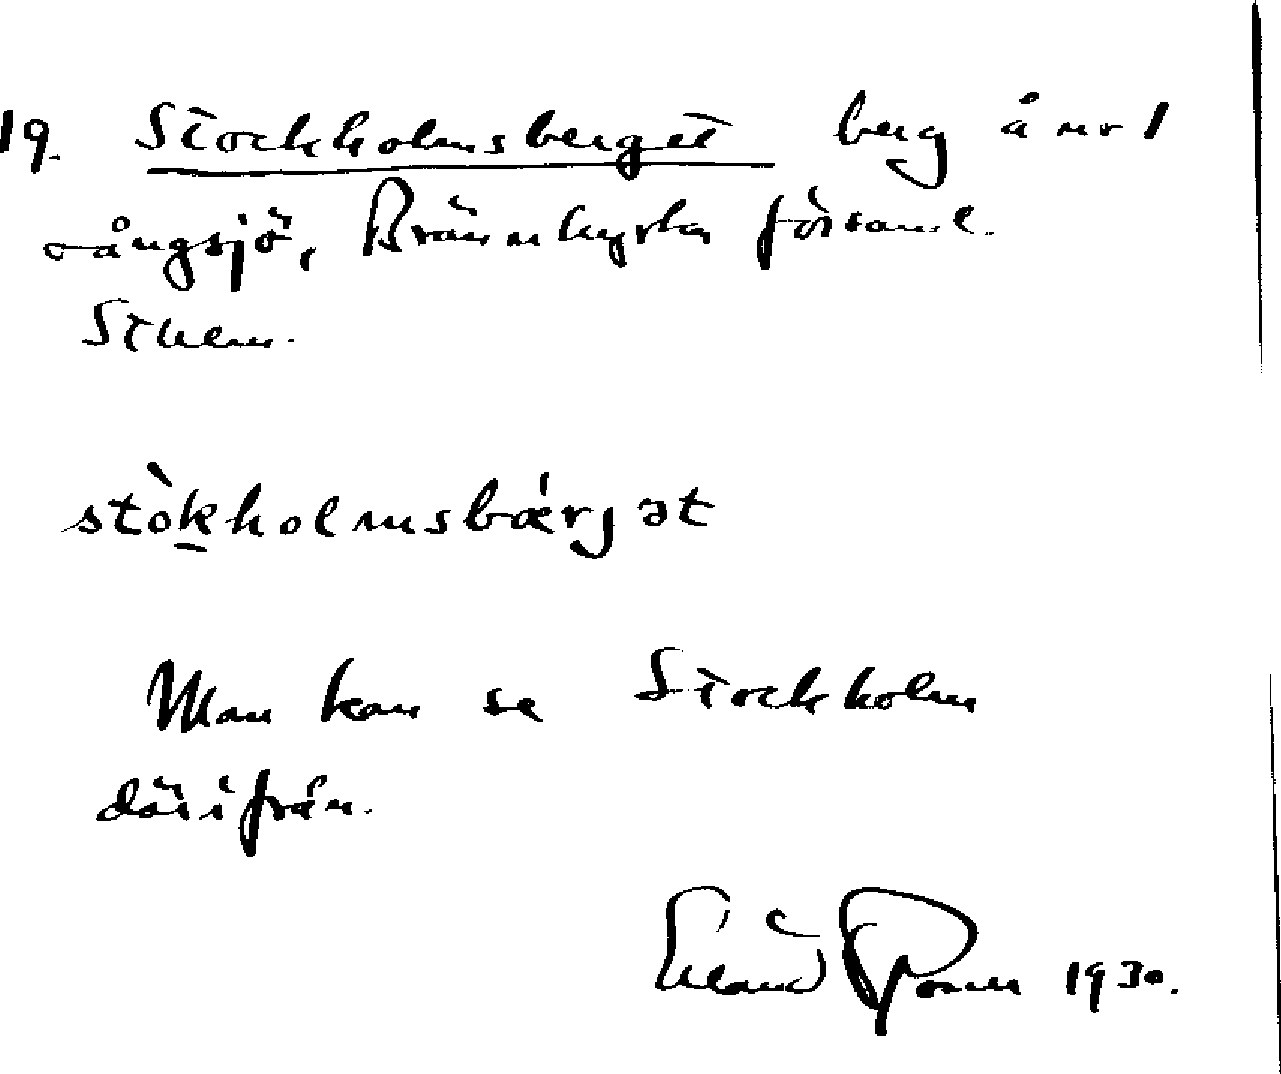 19. Stockholmsberget berg å nr 1
Långsjö, Brännkyrka församl.
Sthlm.
stòk̲holmsbǽrjət
Man kan se Stockholm
därifrån.
Erland Rosell 1930.